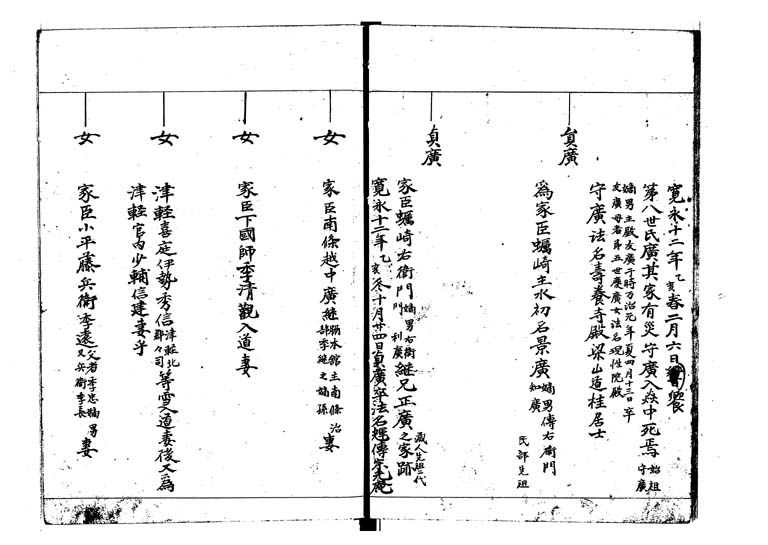 寛永十二年乙亥春二月六日 饗
第八世氏廣其家有災守廣入焱中死焉 始祖守廣
嫡男主殿友廣于時万治元年夏四月十三日卒
友廣母者第五世慶廣女法名理性院殿
守廣法名壽養寺殿梁山道桂居士
貞廣
爲家臣蠣崎主水初名景廣 嫡男傳右衛門知廣
民部先祖
貞廣
家臣蠣崎右衛門 嫡男右衛門利廣 継兄正廣之家跡 藏人先祖二代
寛永十二年乙亥冬十月廿四日貞廣卒法名
女
家臣南條越中廣継 主南條治部季継之嫡孫 妻
女
家臣下國師季清觀入道妻
女
津軽喜庭伊勢秀信 津軽北郡々司 等雪入道妻後又為
津軽宮内少輔信建妻乎
女
家臣小平藤兵衛季遠 父者季忠嫡男又兵衛季長 妻